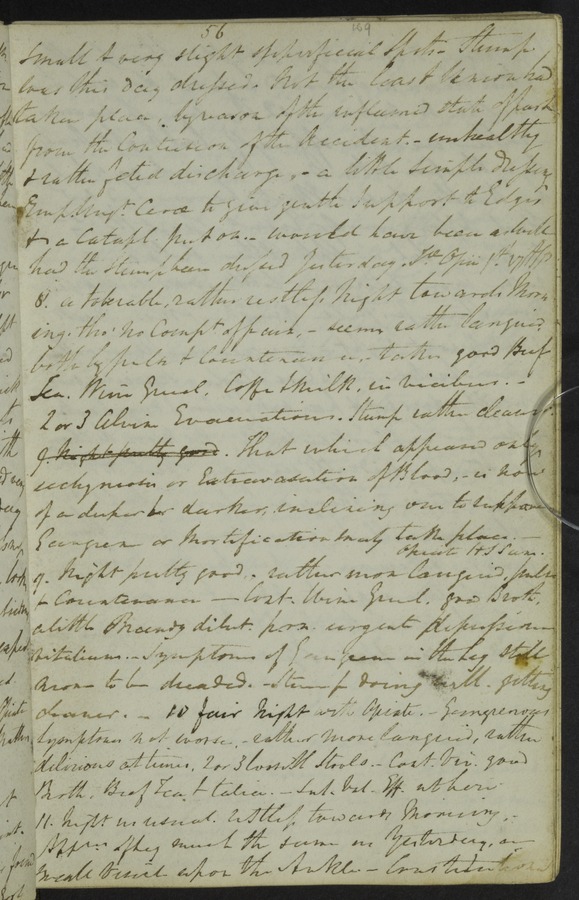 56
169
small & very slight superficial Spots - Stump
was this day dressed. Not the least Union had
taken place, by reason of the inflamed state of parts
from the Contusion of the Accident. - unhealthy
& rather fetid discharge, - a little simple Dressing
Emp. Ceræ to give gentle support to Edges
& a Catapl. put on. - would have been as well
had the Stump been dressed yesterday.
8. a tolerable, rather restless Night towards Morn
ing, tho' no Compt of pain, - seems rather languid
both by pulse & Countenance, - takes good Beef
Tea. Wine Gruel. Coffee & Milk, in vicibus. -
2 or 3 Alvine Evacuations. Stump rather cleaner
9. Night pretty good. That which appeared only
ecchymosis or Extravasation of Blood, - is now
of a deeper or darker, inclining one to suppose
Gangrene or Mortification may take place. -
Opiate H S Sum.
9. Night pretty good, rather more languid, pulse
& Countenance - Cont. Wine Gruel. good Broth.
a little Brandy dilut. p.r.n. urgent depression
vitalium. - Symptoms of Gangrene in the leg still
more to be dreaded. - Stump doing well. getting
cleaner. - 10 fair Night with Opiate. - Gangrenous
Symptoms not worse, - rather more languid, rather
delirious at times. 2 or 3 loosish Stools - Cont. Vin. good
Broth. Beef Tea &
11. Night as usual. restless towards Morning. -
Appce of leg much the same as Yesterday, a
small upon the Ankle - Constitution